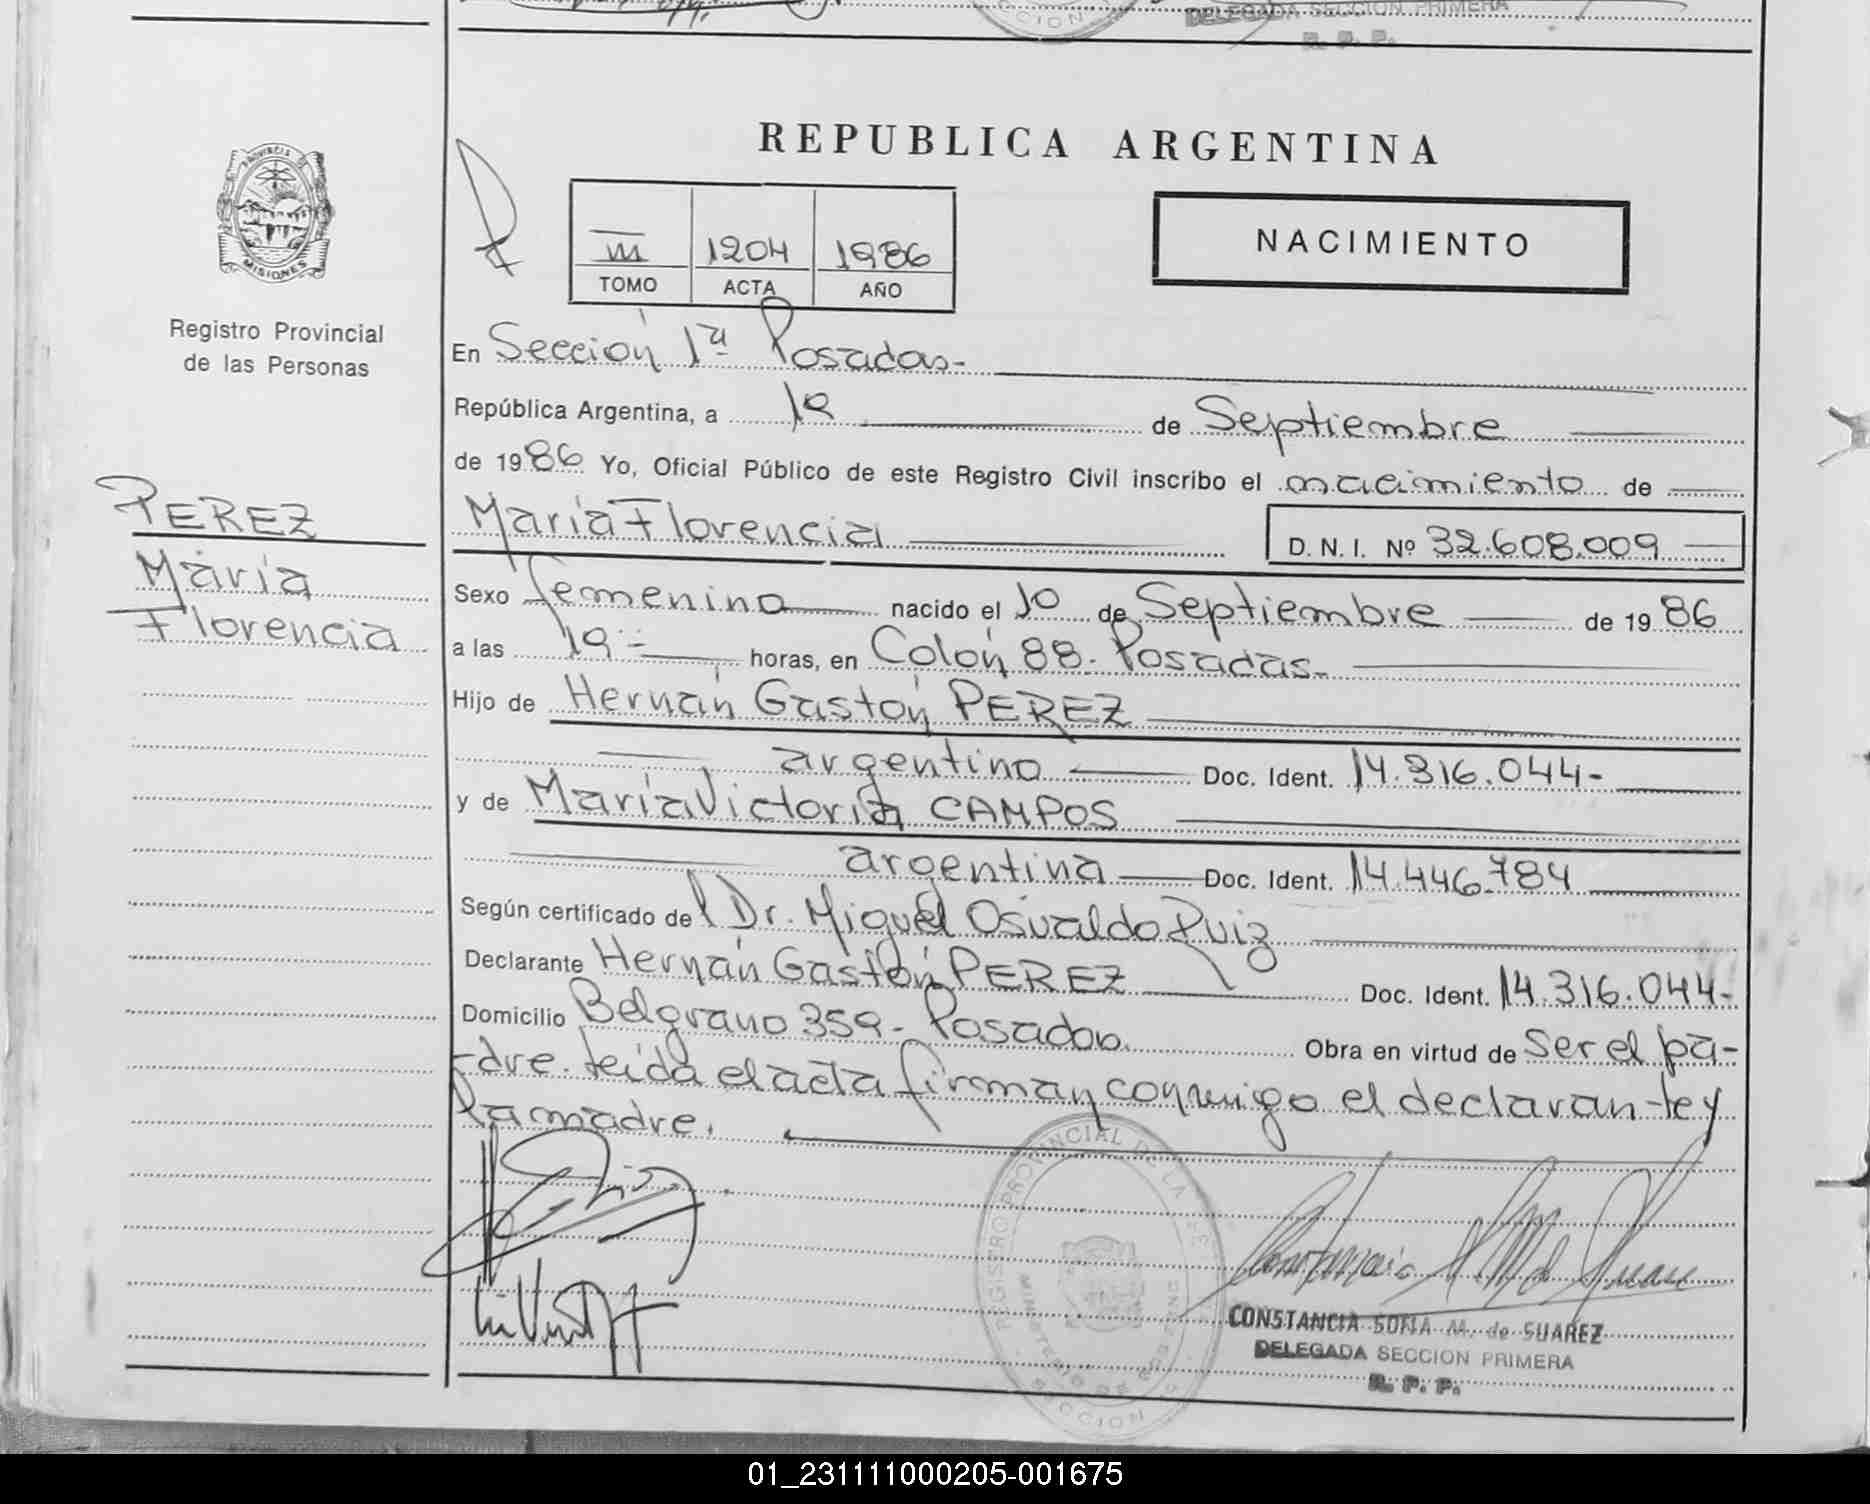 DELEGADA SECCION PRIMERA
R. P. P.
REPUBLICA ARGENTINA
PROVINCIA DE
MISIONES
III 1204 1986
TOMO ACTA AÑO
NACIMIENTO
Registro Provincial
de las Personas
En Sección 1ª Posadas-
República Argentina, a 19 de Septiembre
de 1986 Yo, Oficial Público de este Registro Civil inscribo el nacimiento de
PEREZ
María
Florencia
María Florencia D. N. I. Nº 32.608.009
Sexo femenino nacido el 10 de Septiembre de 1986
a las 19 horas, en Colón 88. Posadas.
Hijo de Hernán Gastón PEREZ
argentino Doc. Ident. 14.316.044-
y de María Victoria CAMPOS
argentina Doc. Ident. 14.446.784
Según certificado del Dr. Miguel Osvaldo Ruiz
Declarante Hernán Gastón PEREZ Doc. Ident. 14.316.044-
Domicilio Belgrano 359- Posadas. Obra en virtud de ser el pa-
-dre. Leída el acta firman conmigo el declarante y
la madre.
REGISTRO PROVINCIAL DE LA
MINISTERIO DE
SECCION
CONSTANCIA SOFIA M. de SUAREZ
DELEGADA SECCION PRIMERA
R. P. P.
01_231111000205-001675